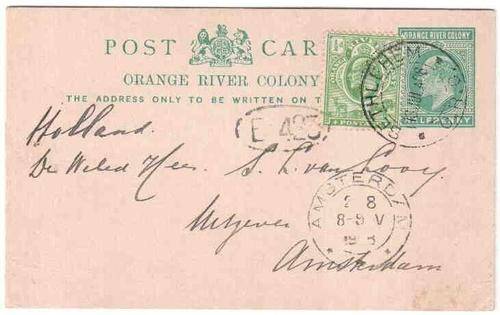 POST CAR
ORANGE RIVER COLONY
THE ADDRESS ONLY TO BE WRITTEN ON T
ORANGE RIVER COLONY
HALFPENNY
½ PENNY
BETHLEHEM
E 423
Holland.
De Weled Heer S. L. van Looy
Uitgever
Amsterdam
AMSTERDAM
2 8
8-9 V